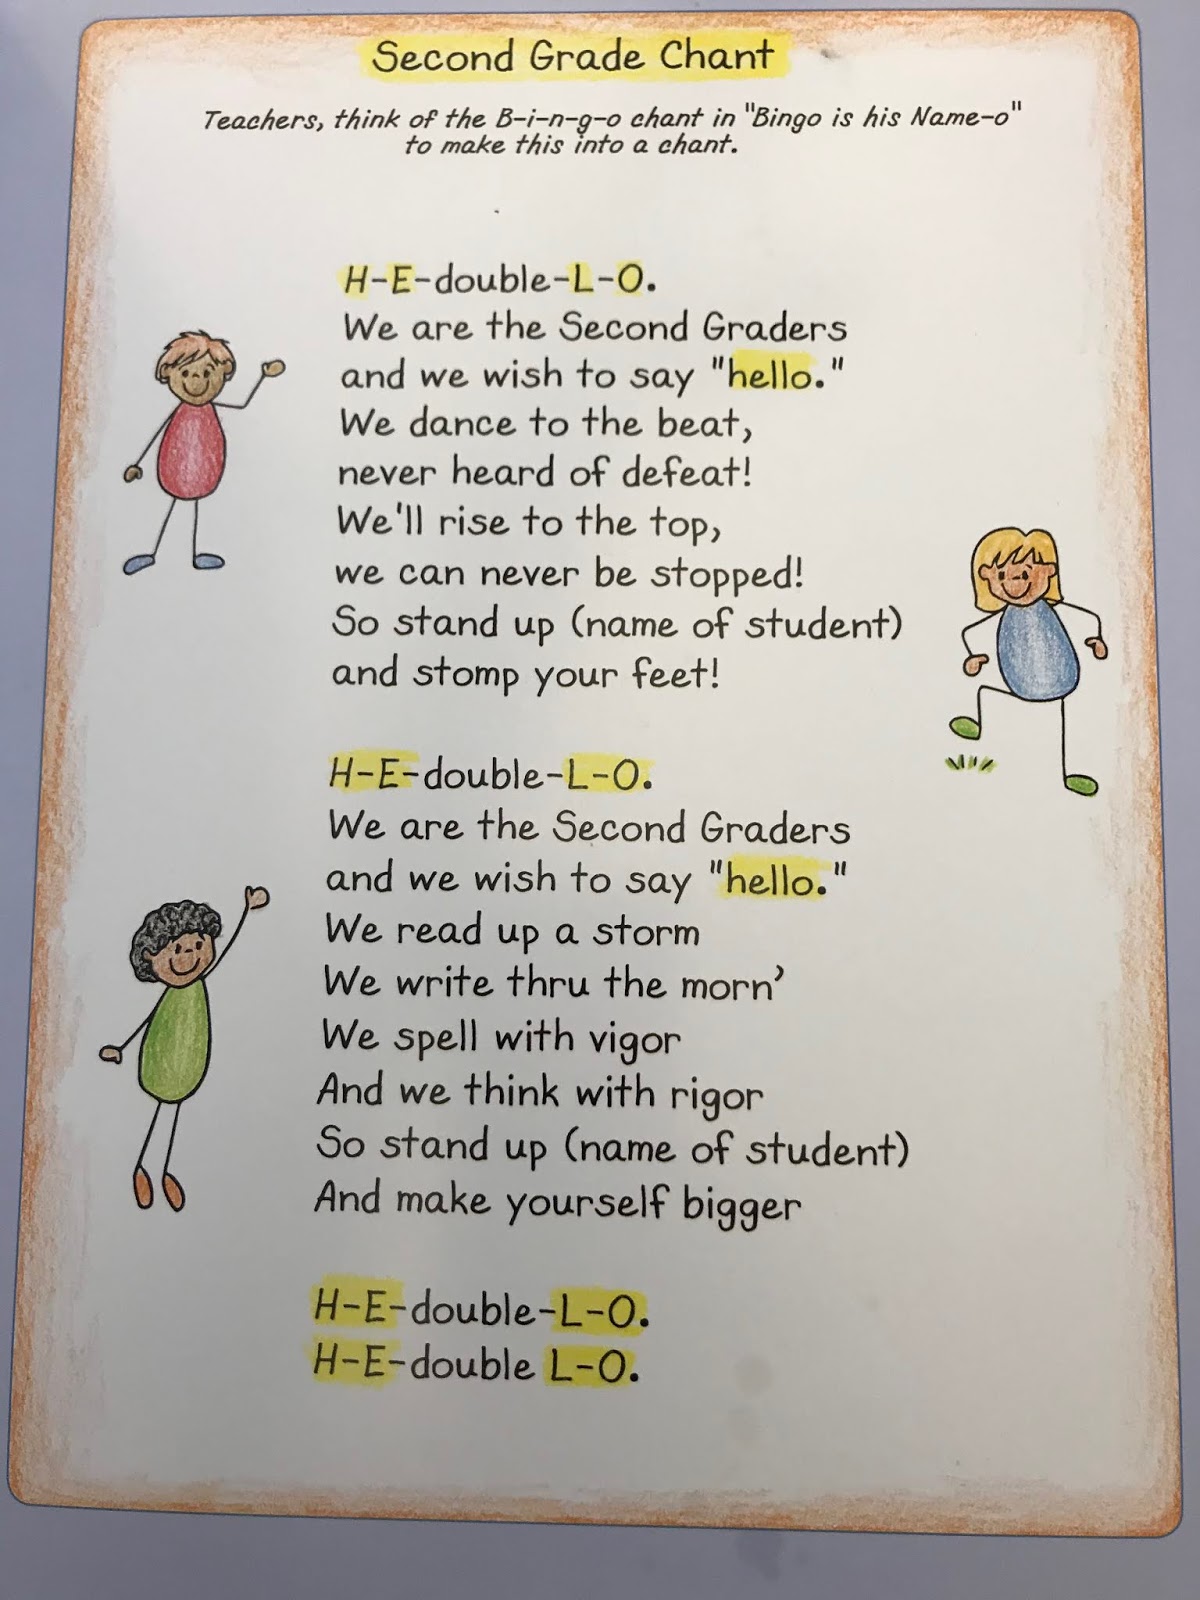 Second Grade Chant
Teachers, think of the B-i-n-g-o chant in "Bingo is his Name-o"
to make this into a chant.
H-E-double-L-O.
We are the Second Graders
and we wish to say "hello."
We dance to the beat,
never heard of defeat!
We'll rise to the top,
we can never be stopped!
So stand up (name of student)
and stomp your feet!
H-E-double-L-O.
We are the Second Graders
and we wish to say "hello."
We read up a storm
We write thru the morn'
We spell with vigor
And we think with rigor
So stand up (name of student)
And make yourself bigger
H-E-double-L-O.
H-E-double L-O.